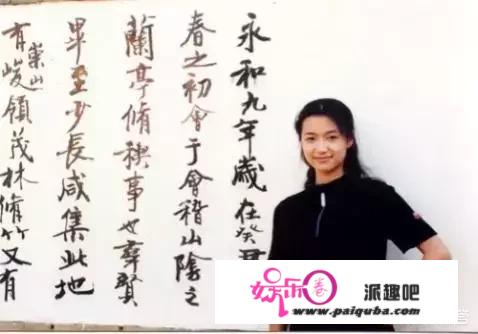 永和九年歲在癸丑
春之初會于會稽山陰之
蘭亭脩稧事也羣賢
畢至少長咸集此地
有崇山峻領茂林脩竹又有
娱乐圈
派趣吧
http://www.paiquba.com/